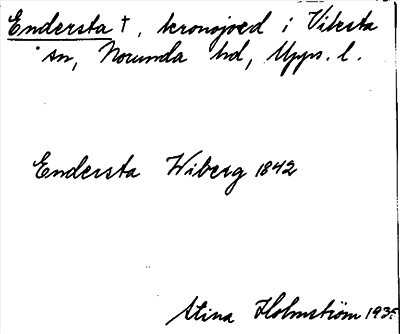 Endersta †, kronojord i Viksta
sn, Norunda hd, Upps. l.
Endersta Wiberg 1842
Stina Holmström 1935